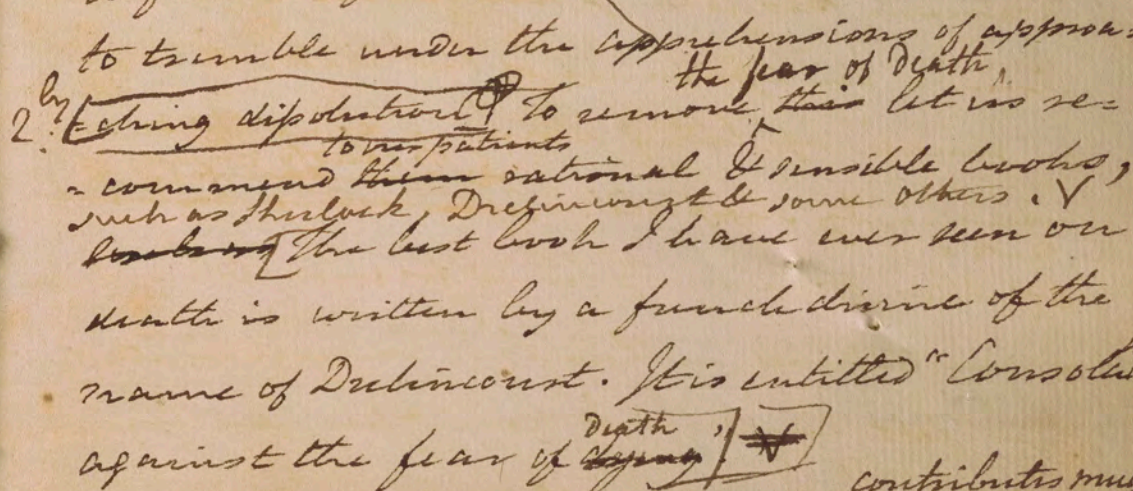 to tremble under the apprehensions of approa=
the fear of Death,
2ly =ching dissolution. To remove this let us re=
to our patients
=commend them rational & sensible books,
such as Sherlock, Drelincourt & some others.
The best book I have ever seen on
death is written by a french divine of the
name of Drelincourt. It is entitled "Consolat
Death "
against the fear of dying
contributes muc